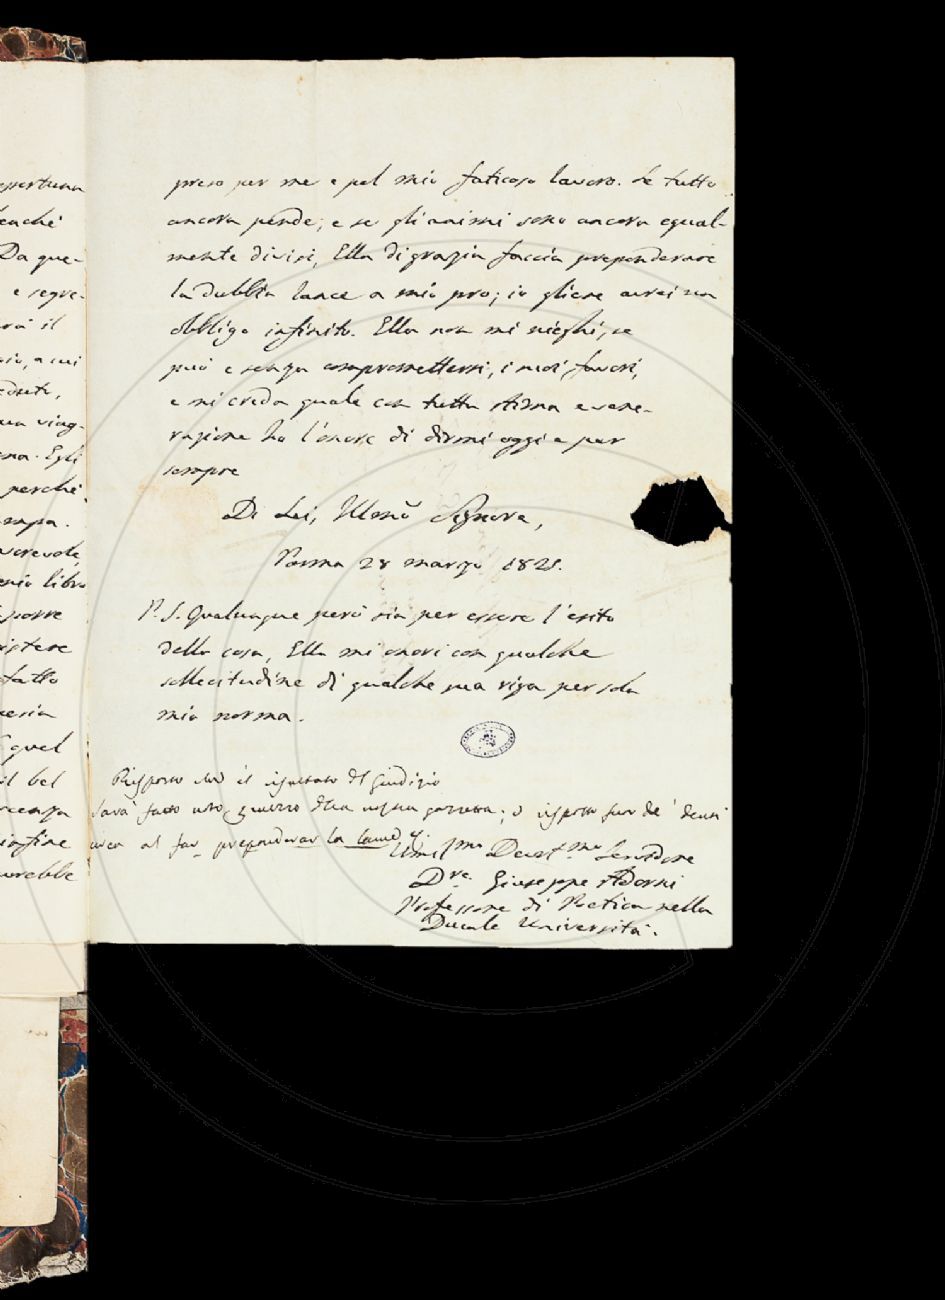 opportuna
Da que-
e segre-
rà il
a cui
viag-
Egli
perchè
libro
porre
istere
quel
il bel
infine
preso per me e pel mio faticoso lavoro. Se tutto
ancora pende, e se gli animi sono ancora egual-
mente divisi, Ella di grazia faccia preponderare
la dubbia lance a mio pro; io gliene avrei un
obbligo infinito. Ella non mi nieghi, se
può e senza compromettersi, i suoi favori,
e mi creda quale con tutta stima e vene-
razione ho l'onore di dirmi oggi e per
sempre
Di Lei, Illmõ Signore,
Parma 28 marzo 1821.
P. S. Qualunque però sia per essere l'esito
della cosa, Ella mi onori con qualche
sollecitudine di qualche sua riga per sola
mia norma.
Risposto che il risultato del giudizio
sarà fatto noto a mezzo della nostra gazzetta; e risposto
al far preponderar la lance &.
Umilmo Devotmo Servidore
Dre. Giuseppe Adorni
Professore di Poetica nella
Ducale Università.